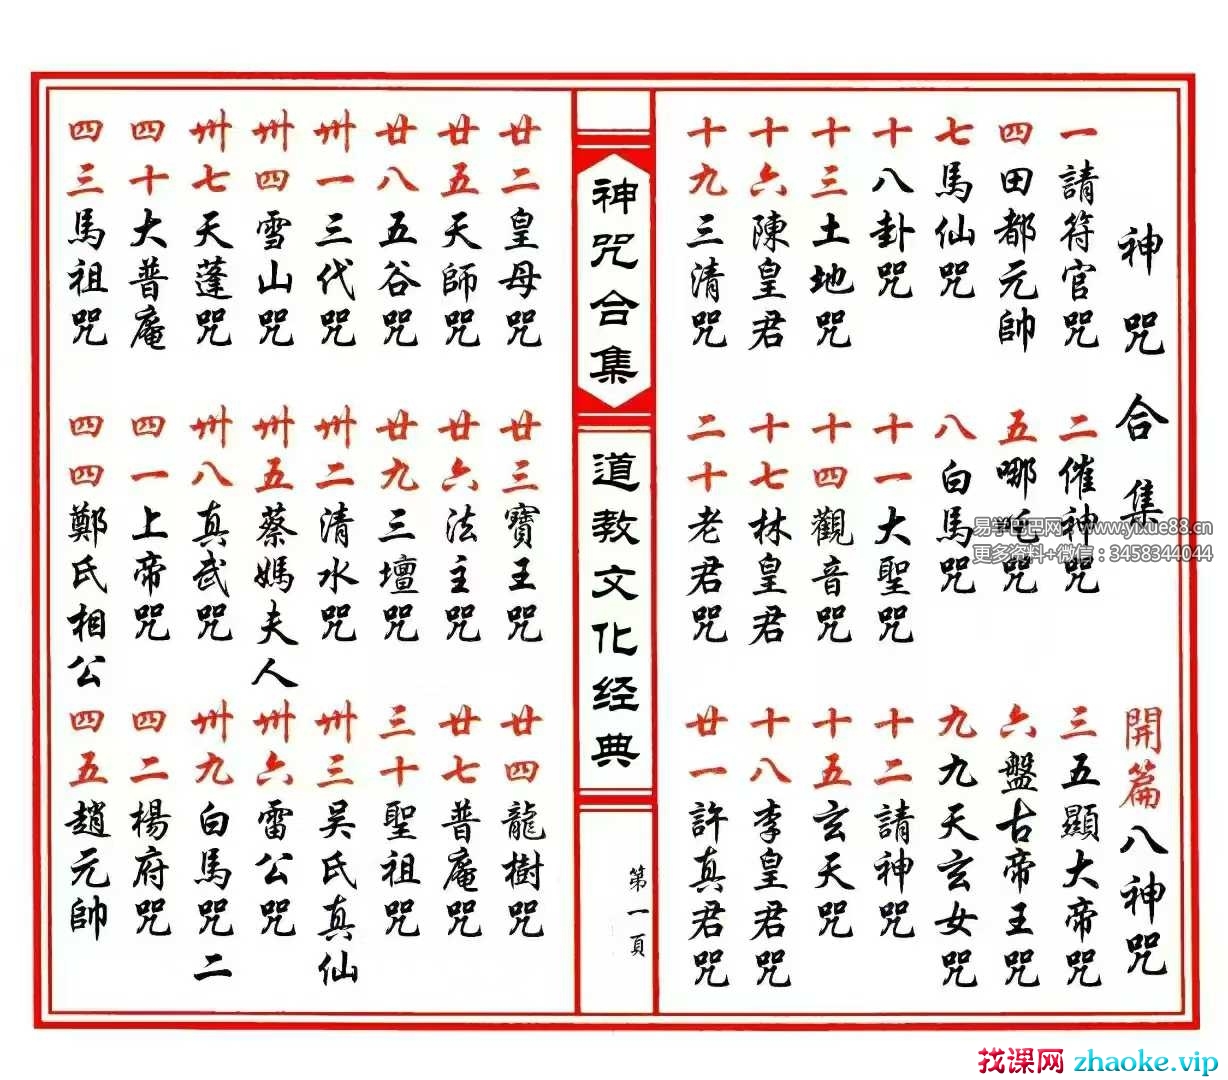 神咒合集 開篇八神咒
一請符官咒 二催神咒 三五顯大帝咒
四田都元帥 五哪吒咒 六盤古帝王咒
七馬仙咒 八白馬咒 九九天玄女咒
十八卦咒 十一大聖咒 十二請神咒
十三土地咒 十四觀音咒 十五玄天咒
十六陳皇君 十七林皇君 十八李皇君咒
十九三清咒 二十老君咒 廿一許真君咒
神咒合集
道教文化经典
第一頁
廿二皇母咒 廿三寶王咒 廿四龍樹咒
廿五天師咒 廿六法主咒 廿七普庵咒
廿八五谷咒 廿九三壇咒 三十聖祖咒
卅一三代咒 卅二清水咒 卅三吴氏真仙
卅四雪山咒 卅五蔡媽夫人 卅六雷公咒
卅七天蓬咒 卅八真武咒 卅九白馬咒二
四十大普庵 四一上帝咒 四二楊府咒
四三馬祖咒 四四鄭氏相公 四五趙元帥
易学巴巴网 - www.yixue88.cn
更多资料+微信：3458344044
找课网 zhaoke.vip